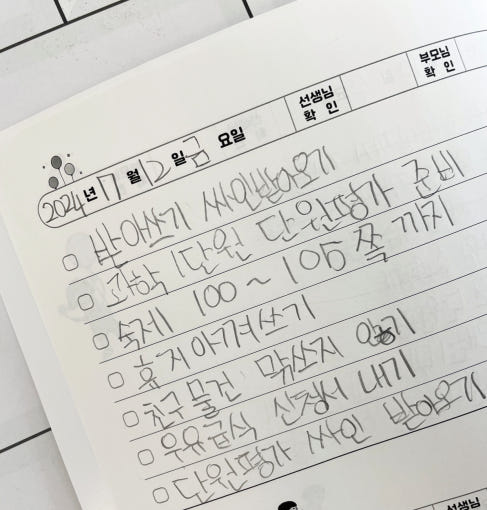 부모님
확 인
선생님
확 인
2024년 7월 12일 금요일
받아쓰기 싸인받아오기
과학 1단원 단원평가 준비
숙제 100~105쪽 까지
휴지아껴쓰기
친구물건 막쓰지 않기
우유급식 신청서 내기
단원평가 싸인 받아오기
선생님